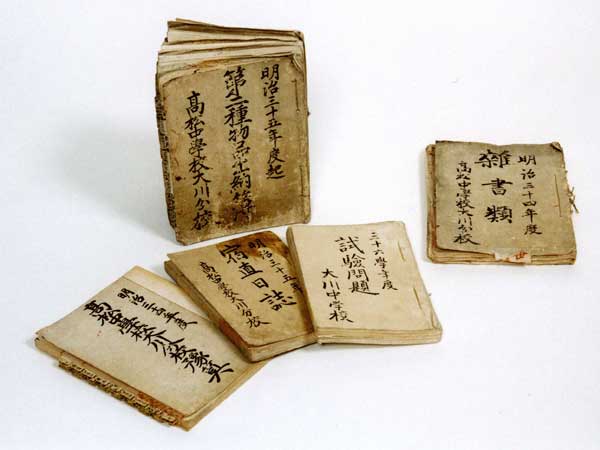 明治三十五年度起
第二種物品出納簿
高松中學校大川分校
明治三十四年度
雜書類
高松中學校大川分校
三十六學年度
試驗問題
大川中學校
明治三十五年
宿直日誌
高松中學校大川分校
明治三十四年度
高松中學校大川分校豫算